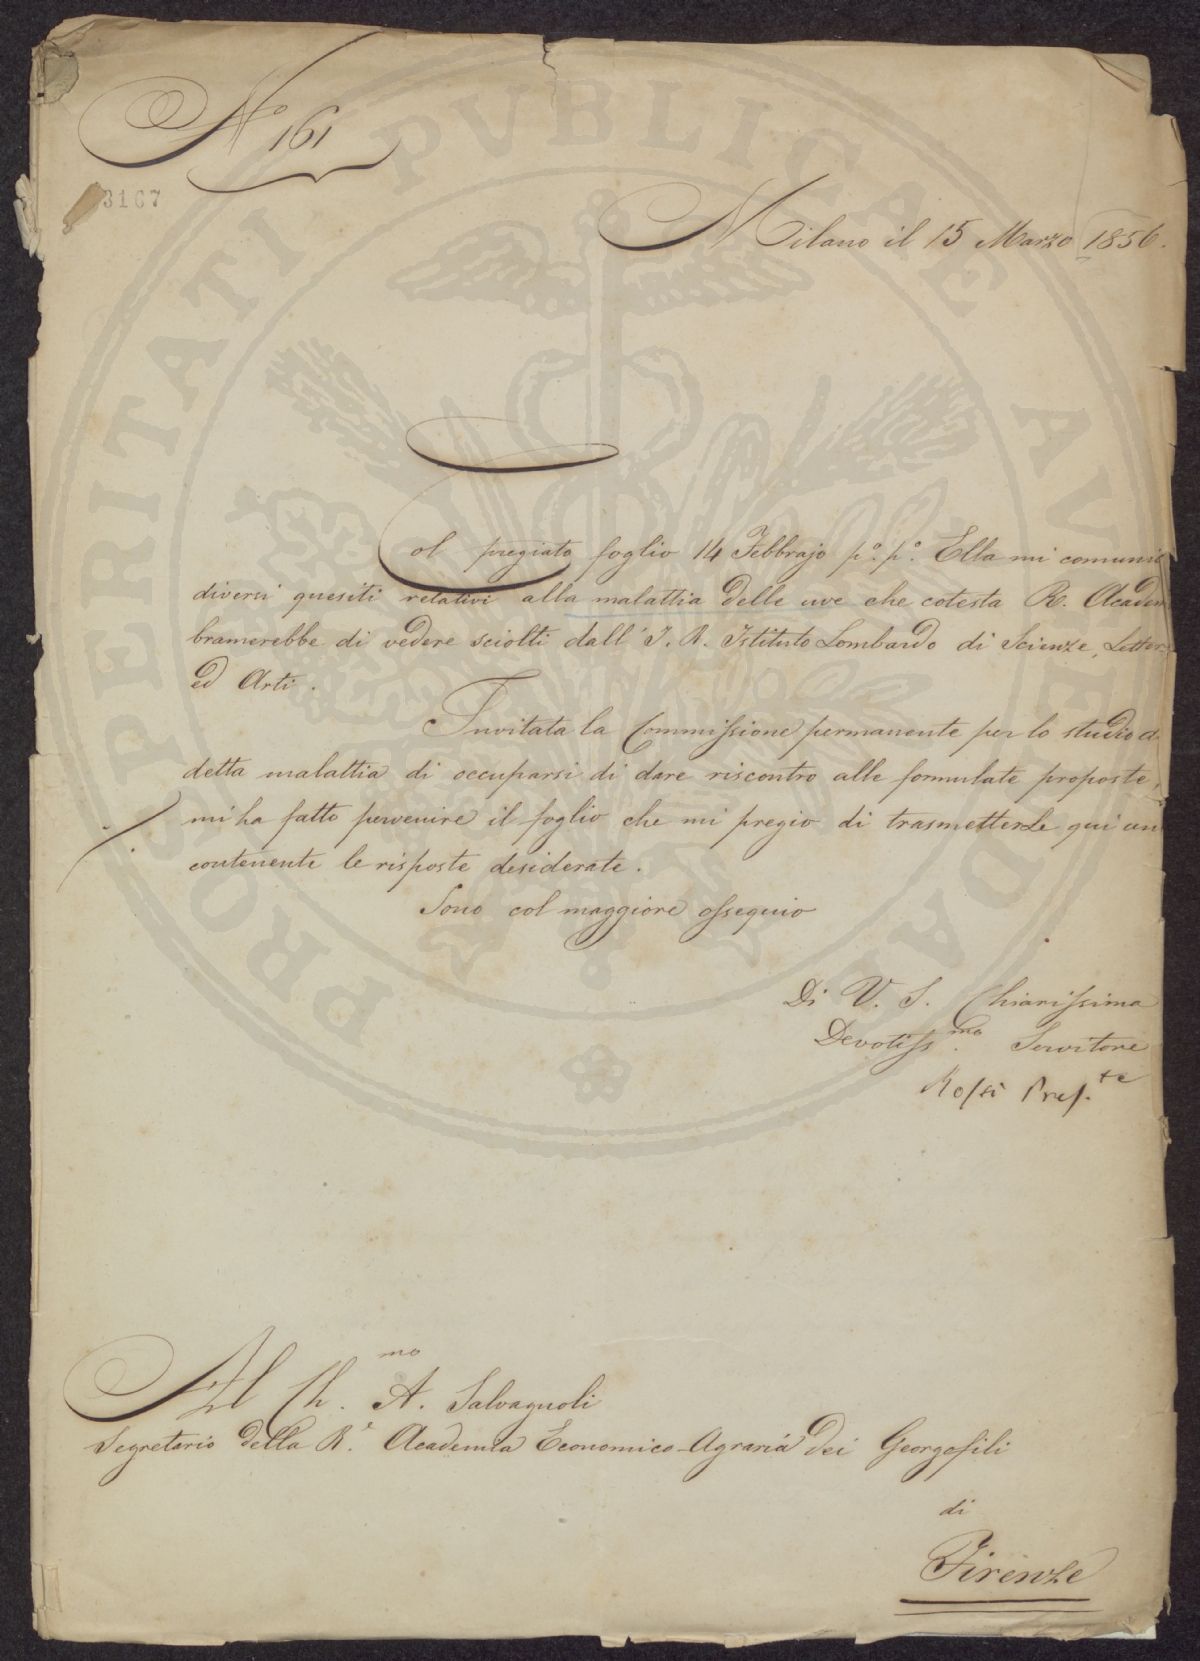 N.° 161
3167
Milano il 15 Marzo 1856.
Col pregiato foglio 14 Febbrajo p.° p.° Ella mi comuni
diversi quesiti relativi alla malattia delle uve che cotesta R. Academ
bramerebbe di vedere sciolti dall' I. R. Istituto Lombardo di Scienze, Letter
ed Arti.
Invitata la Commissione permanente per lo studio d
detta malattia di occuparsi di dare riscontro alle formulate proposte,
mi ha fatto pervenire il foglio che mi pregio di trasmetterLe qui un
contenente le risposte desiderate.
Sono col maggiore ossequio
Di V. S. Chiarissima
Devotiss.mo Servitore
Rossi Pres.te
Al Ch.mo A. Salvagnoli
Segretario della R.e Academia Economico-Agraria dei Georgofili
di
Firenze
PROSPERITATI PVBLICAE AVGENDAE